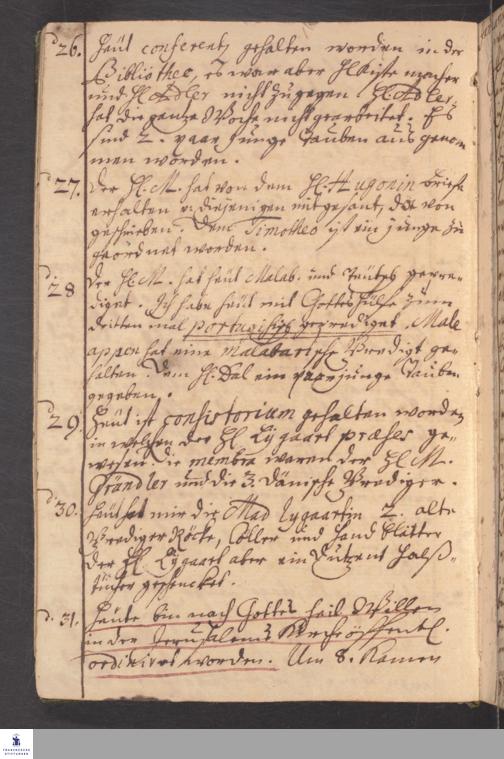 d 26. Heüt conferentz gehalten worden in der
Bibliothec, es war aber H Kistenmacher
und H. Adler nicht zugegen. H. Adler
hat die gantze Woche nicht gearbeitet. Es
sind 2. paar junge Tauben aus genom
men worden.
d 27. Der H. M. hat von dem H. Hugonin brieffe
erhalten u. diejenigen mitgesant, das von
geschrieben. Dem Timotheo ist ein junge zu
geordnet worden.
d. 28 der H. M. hat heüt Malab. und Teütsch gepre-
diget. Ich habe heüt mit Gottes Hülfe zum
dritten mal portugisisch geprediget. Male
appen hat eine Malabarische Predigt ge-
halten. Dem H. Dal ein paar junge Tauben
gegeben.
d 29. Heüt ist Consistorium gehalten worden
in welchen der H. Lÿgaart præses ge-
wesen. die membra waren der H. M.
Gründler und die 3. Dänische Prediger.
d. 30. Heüt hat mir die Mad Lygaartin 2. alte
Prediger Röcke, Coller und Hand blätter
der H. Lÿgaart aber ein Dutzent Halß-
tücher geschencket.
d. 31. Heute bin nach Gottes heil. Willen
in der Jerusalems Kirche öffentl.
ordiniret worden. Um 8. kamen
FRANCKESCHE STIFTUNGEN